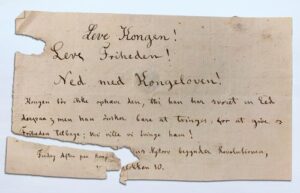 Leve Kongen!
Leve Friheden!
Ned med Kongeloven!
Kongen bör ikke ophæve den, thi han har svoret en Ed
derpaa; men han önsker bare at tvinges, for at give os
Friheden tilbage; thi ville vi tvinge ham!
Fredag Aften paa Kong
ns Nytorv begynder Revolutionen,